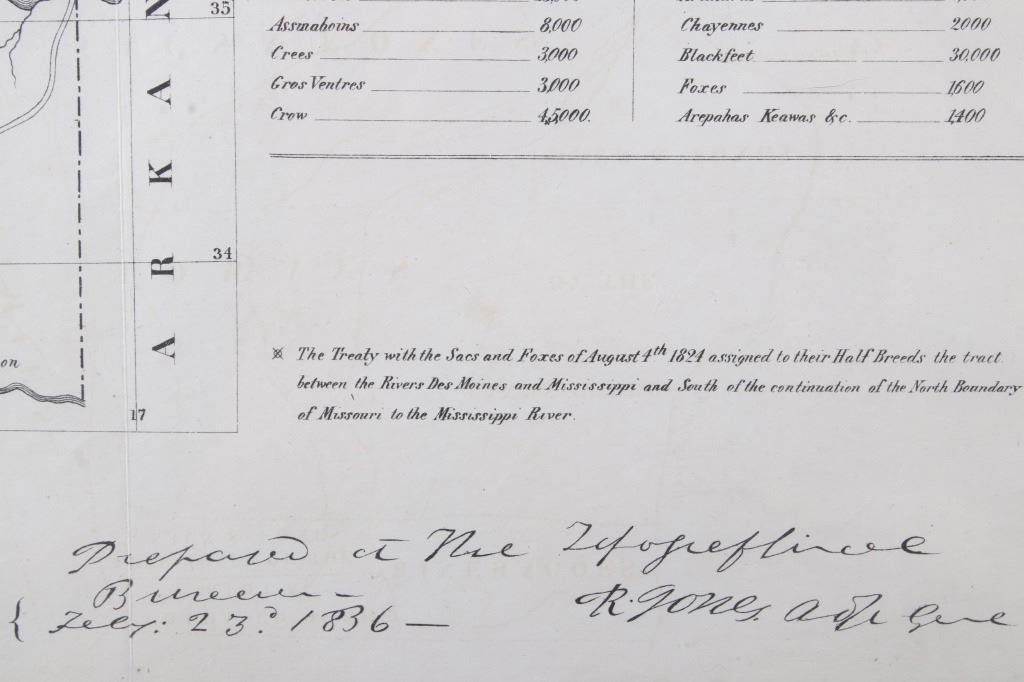 35
Assinaboins 8,000
Crees 3,000
Gros Ventres 3,000
Crow 4,5000.
Chayennes 2000
Blackfeet 30,000
Foxes 1,600
Arepahas Keawas &c. 1,400
ARKAN
34
on
17
※ The Treaty with the Sacs and Foxes of August 4th 1824 assigned to their Half Breeds the tract
between the Rivers Des Moines and Mississippi and South of the continuation of the North Boundary
of Missouri to the Mississippi River.
Prepared at The Topographical
Bureau –
{ Feby: 23d. 1836 —
R. Jones. Adjt Genl